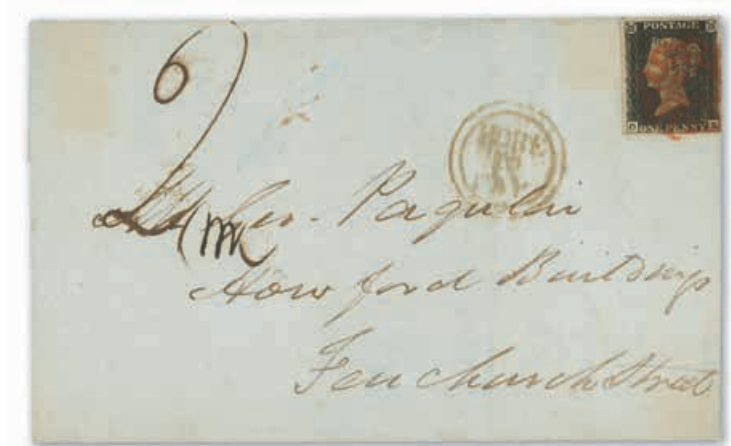 POSTAGE
ONE PENNY
MORE
TO
PAY
Pagulin
Howford Buildings
Fenchurch Street